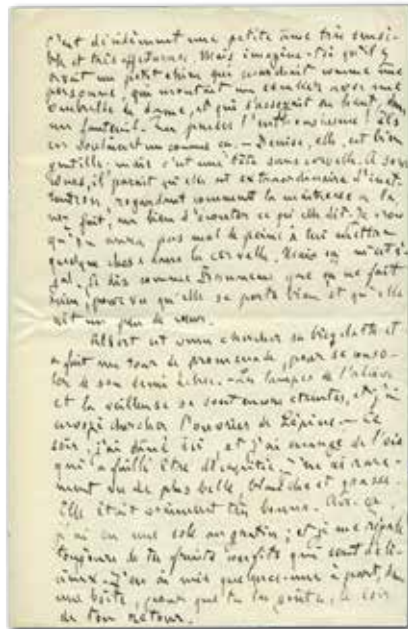 c'est décidément une petite âme très sensi-
ble et très affectueuse. Mais imagine-toi qu'il y
avait un petit chien qui marchait comme une
personne, qui montait un escalier avec une
ombrelle de dame, et qui s'asseyait en haut, dans
un fauteuil. Tu penses l'enthousiasme !
un comme ça. – Denise, elle, est bien
gentille – mais c'est une tête sans cervelle. A son
cours, il paraît qu'elle est extraordinaire d'inat-
tention, regardant comment la maîtresse a le
nez fait, au lieu d'écouter ce qu'elle dit. Je crois
qu'on aura pas mal de peine à lui mettre
quelque chose dans la cervelle. Mais ça m'est é-
gal. Je dis comme que ça ne fait
rien, pourvu qu'elle se porte bien et qu'elle
ait un peu de cœur.
Albert est venu chercher sa bicyclette et
a fait un tour de promenade, pour se conso-
ler de son demi échec. – Les lampes de l'
et la veilleuse se sont encore éteintes, et j'ai
envoyé chercher l'ouvrier de Lépine. – Ce
soir, j'ai dîné ici, et j'ai mangé de l'oie
qui a failli être J'en ai rare-
ment vu de plus belle, blanche et grasse.
Elle était vraiment très bonne. Avec ça,
j'ai eu une sole au gratin ; et je me régale
toujours de tes fruits confits qui sont déli-
cieux. J'en ai mis quelques-uns à part, dans
une boîte, pour que tu les goûtes, le soir
de ton retour.